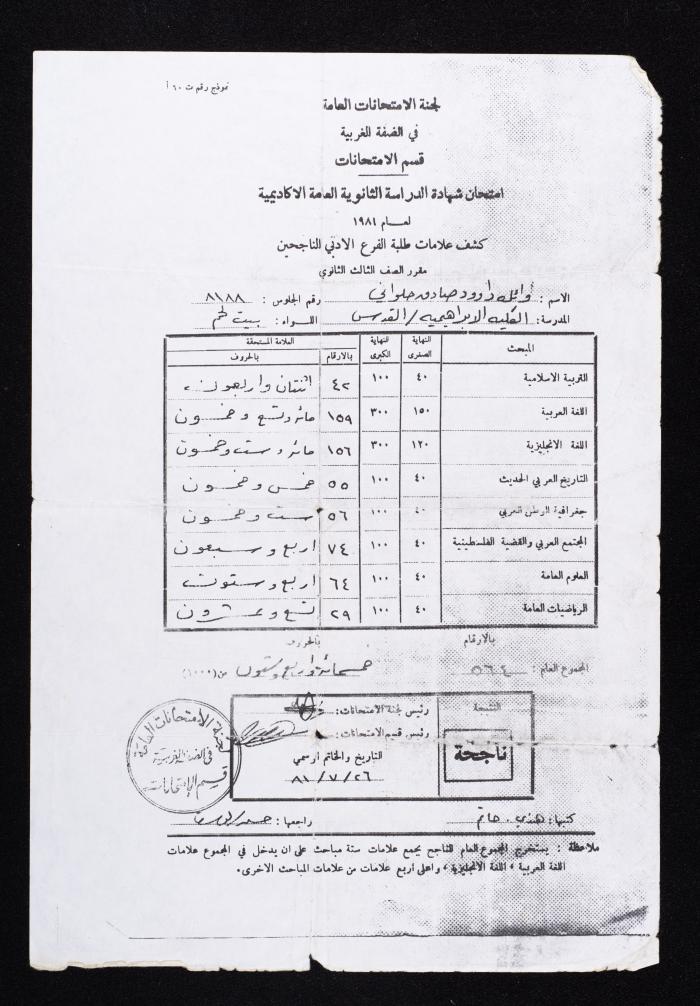 نموذج رقم ت ٦٠ أ
لجنة الامتحانات العامة
في الضفة الغربية
قسم الامتحانات
امتحان شهادة الدراسة الثانوية العامة الاكاديمية
لعام ١٩٨١
كشف علامات طلبة الفرع الادبي الناجحين
مقرر الصف الثالث الثانوي
الاسم : داوود صادق حلواني رقم الجلوس : ٨١٨٨
المدرسة : الكليه الابراهيميه / القدس اللواء : بيت لحم
المبحث النهاية الصغرى النهاية الكبرى العلامة المستحقة بالارقام بالحروف
التربية الاسلامية ٤٠ ١٠٠ ٤٢ اثنتان واربعون
اللغة العربية ١٥٠ ٣٠٠ ١٥٩ مائه وتسع وخمسون
اللغة الانجليزية ١٢٠ ٣٠٠ ١٥٦ مائه وست وخمسون
التاريخ العربي الحديث ٤٠ ١٠٠ ٥٥ خمس وخمسون
جغرافية الوطن العربي ٤٠ ١٠٠ ٥٦ ست وخمسون
المجتمع العربي والقضية الفلسطينية ٤٠ ١٠٠ ٧٤ اربع وسبعون
العلوم العامة ٤٠ ١٠٠ ٦٤ اربع وستون
الرياضيات العامة ٤٠ ١٠٠ ٢٩ تسع وعشرون
بالارقام بالحروف
المجموع العام : ٥٦٤ خمسمائه واربع وستون من (١٠٠٠)
النتيجة
ناجحة
رئيس لجنة الامتحانات :
رئيس قسم الامتحانات :
التاريخ والخاتم الرسمي
٨١/٧/٢٦
لجنة الامتحانات العامة
في الضفة الغربية
قسم الامتحانات
كتبها : حاتم راجعها :
ملاحظة : يستخرج المجموع العام للناجح بجمع علامات ستة مباحث على ان يدخل في المجموع علامات
اللغة العربية ، اللغة الانجليزية ، واعلى أربع علامات من علامات المباحث الاخرى.